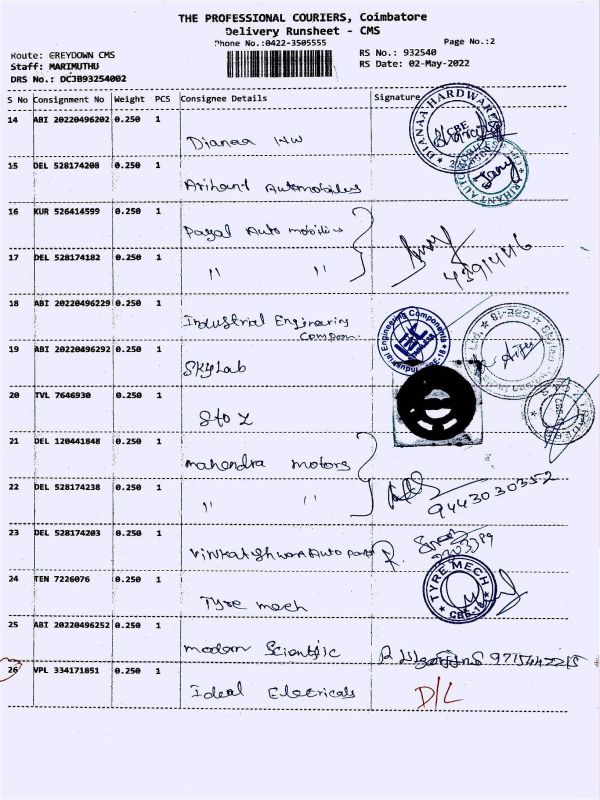 THE PROFESSIONAL COURIERS, Coimbatore
Delivery Runsheet - CMS
Phone No.:0422-3505555
Page No.:2
Route: GREYDOWN CMS
RS No.: 932540
Staff: MARIMUTHU
RS Date: 02-May-2022
DRS No.: DCJB93254002
S No Consignment No Weight PCS Consignee Details Signature
14 ABI 20220496202 0.250 1
Dianaa H/W
DIANAA HARDWARE
CBE
15 DEL 528174200 0.250 1
Arihant Automobiles
16 KUR 526414599 0.250 1
Payal Automobiles
17 DEL 528174182 0.250 1
" "
18 ABI 20220496229 0.250 1
Industrial Engineering
Compon
Industrial Engineering Components
CBE-18
19 ABI 20220496292 0.250 1
Skylab
20 TVL 7646930 0.250 1
S to Z
21 DEL 120441848 0.250 1
mahendra motors
22 DEL 528174238 0.250 1
" "
9443030352
23 DEL 528174203 0.250 1
24 TEN 7226076 0.250 1
Tyre mech
TYRE MECH
CBE-18
25 ABI 20220496252 0.250 1
modern Scientific
26 VPL 334171851 0.250 1
Ideal Electricals
D/L